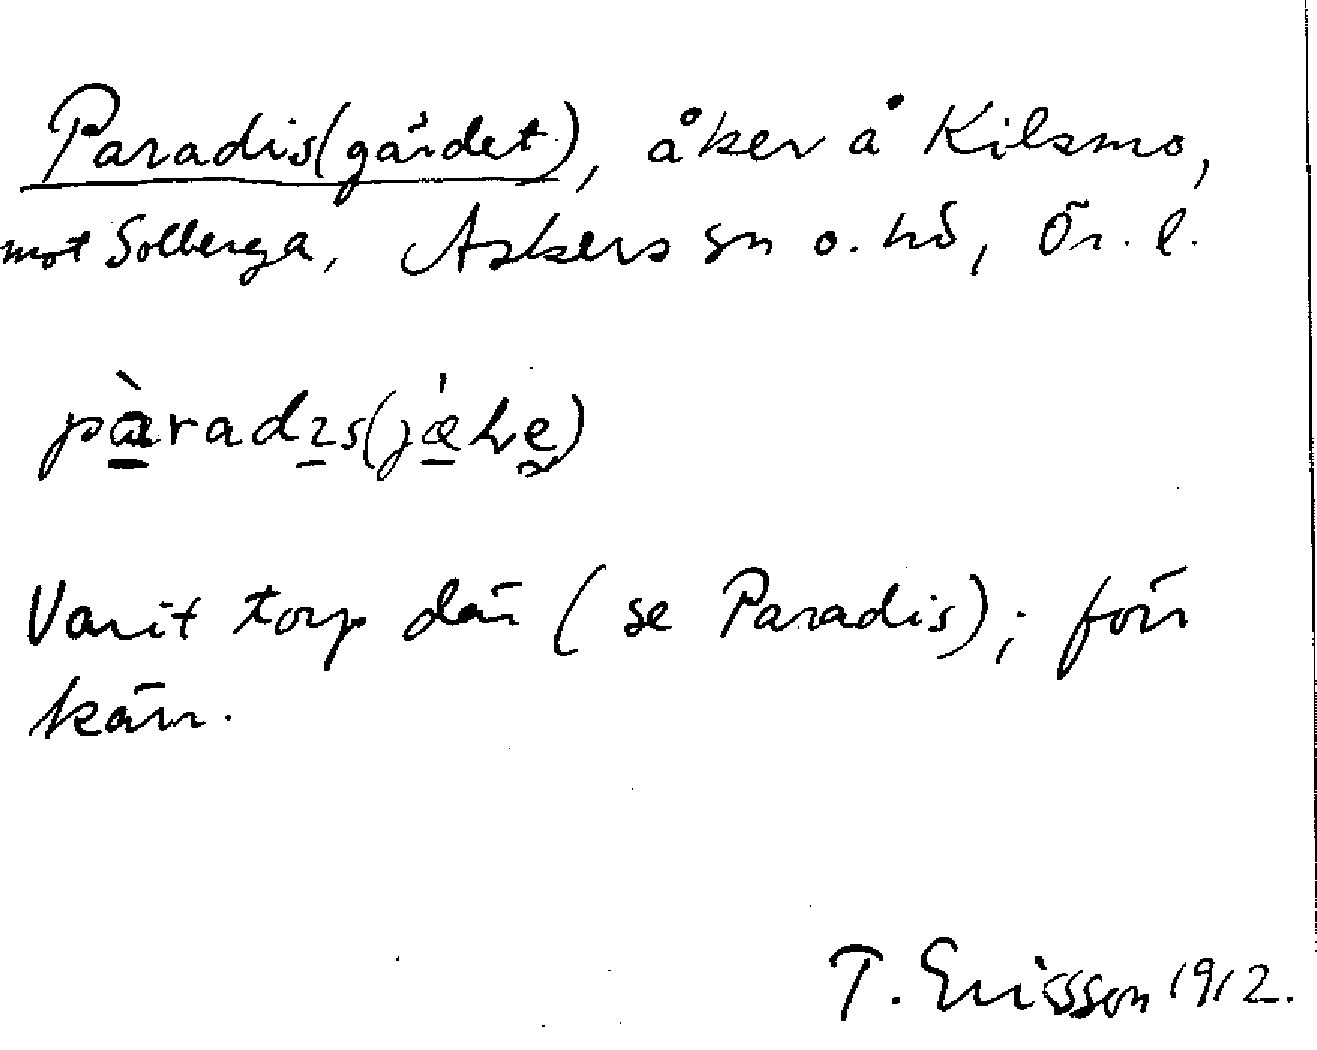 Paradis(gärdet), åker å Kilsmo,
mot Solberga, Askers sn o. hd, Ör. l.
Varit torp där (se Paradis); förr
kärr.
T. Ericsson 1912.